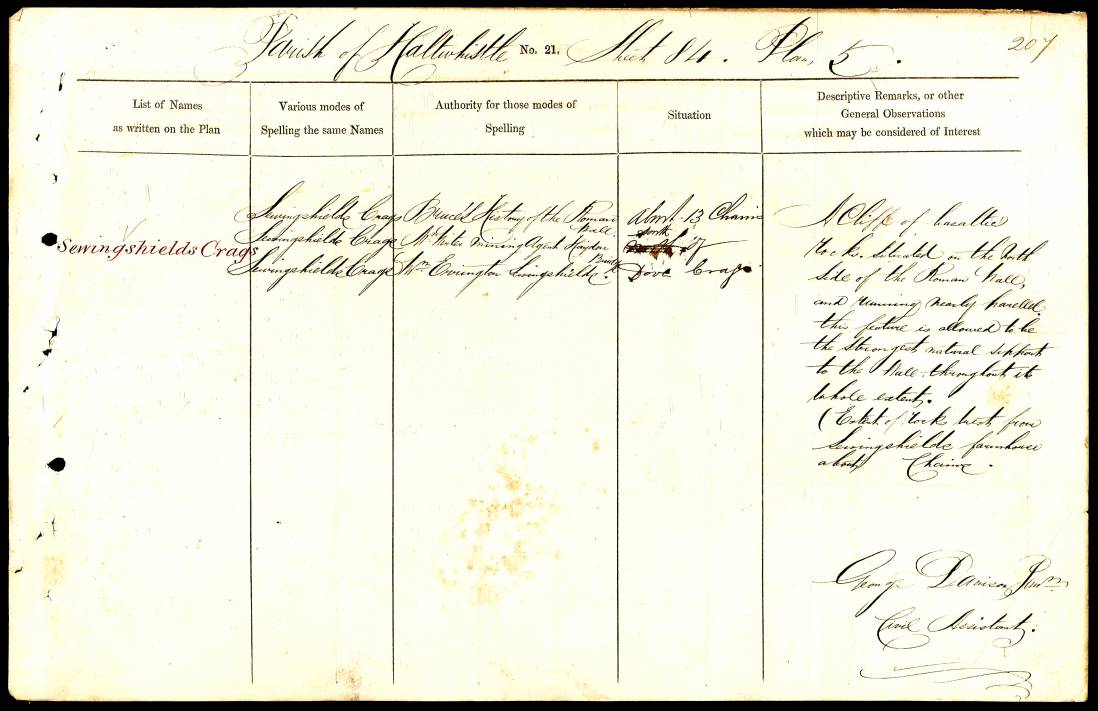 Parish of Haltwhistle No. 21. Sheet 84. Plan, 5. 207
List of Names
as written on the Plan
Various modes of
Spelling the same Names
Authority for those modes of
Spelling
Situation
Descriptive Remarks, or other
General Observations
which may be considered of Interest
Sewingshields Crags
Sewingshields Crags
Sewingshields Crags
Sewingshields Crags
Bruce's History of the Roman
Wall.
Mining Agent Haydon
Bridge
Wm. Errington Sewingshields.
About 13 Chains
North
of
Dove Crag
A Cliff of basaltic
rocks. Situated on the North
side of the Roman Wall,
and running nearly parellel.
this feature is allowed to be
the strongest natural support
to the Wall throughout its
whole extent.
(Extent of rock West from
Sewingshields farmhouse
about Chains.
George
Civil Assistant.